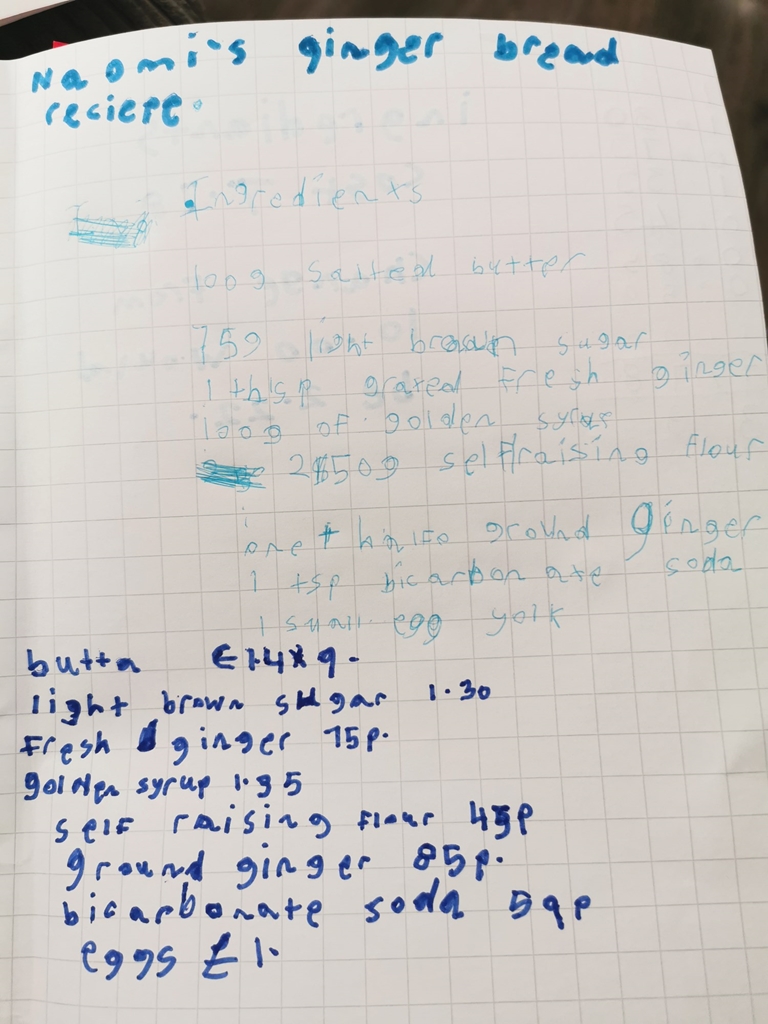 Naomi's ginger bread
reciepe.
Ingredients
100g salted butter
75g light brown sugar
1 tbsp grated fresh ginger
100g of golden syrup
250g selfraising flour
one ground ginger
1 tsp bicarbonate soda
1 small egg yolk
butta £1.49.
light brown sugar 1.30
Fresh ginger 75p.
golden syrup 1.35
self raising flour 45p
ground ginger 85p.
bicarbonate soda 59p
eggs £1.